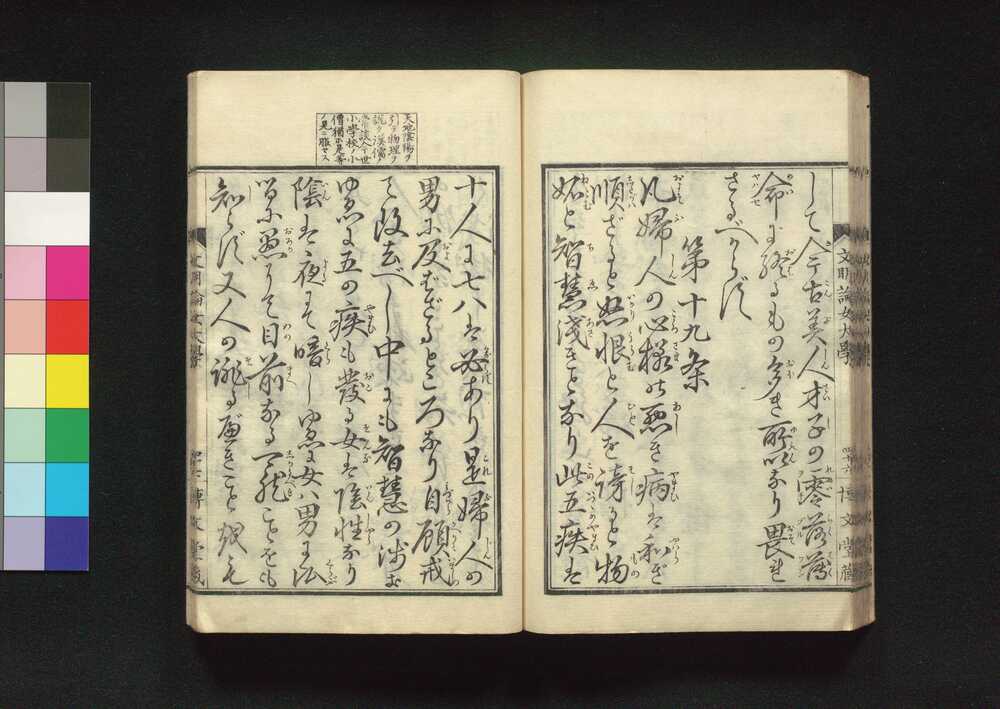 して今古美人才子の零落薄
命に終るもの多き所以なり畏れ
さるべからず
第十九条
凡婦人の心様の悪き病は和ぎ
順ざると怒恨と人を謗ると物
妬と智慧浅きとなり此五疾は
文明論女大學
四十六
博文堂蔵
天地陰陽ヲ
以テ物理ヲ
説ク漢儒ノ
常談今世
小学校ノ小
僧猶
是ニ服セス
十人に七八は必あり是婦人の
男に及むざるところなり自顧戒
て改去べし中にも智慧の浅き
ゆゑに五の疾も發る女は陰性なり
陰は夜にて暗しゆゑに女ハ男に比
るに愚かにて目前なる
知らず又人の誹るべきこと
文明論女大學
博文堂蔵